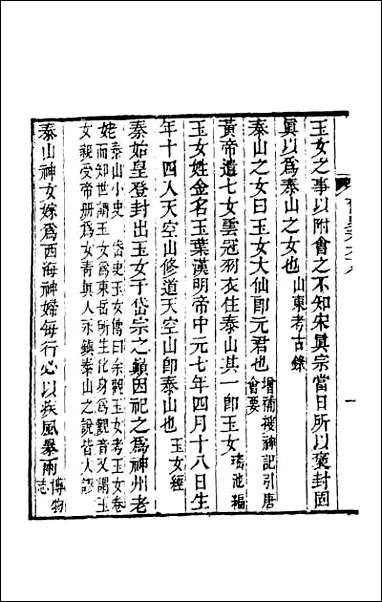 玉女之事以附會之不知宋眞宗當日所以褒封固
眞以爲泰山之女也山東考古錄
泰山之女曰玉女大仙卽元君也增補搜神記引唐
會要
黃帝遣七女雲冠羽衣住泰山其一卽玉女瑤池編
玉女姓金名玉葉漢明帝中元七年四月十八日生
年十四人天空山修道天空山卽泰山也玉女經
秦始皇登封出玉女于岱宗之巔因祀之爲神州老
姥而知世謂玉女爲東岳所生化身爲觀音又謂玉
泰山小史 岱史玉女傳曰余觀玉女考玉女卷
女親受帝册爲女靑與人永鎭泰山之說皆人謬
泰山神女嫁爲西海神婦每行必以疾風暴雨博物
志